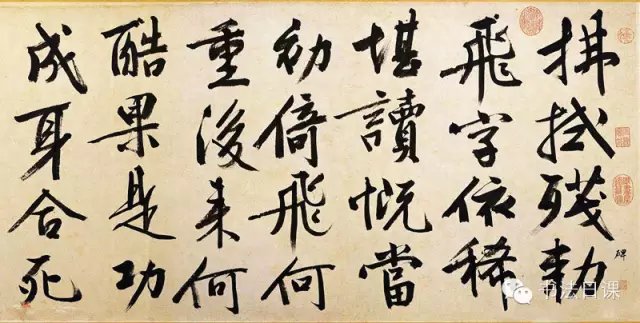 拂拭殘勅
碑
飛字依稀
堪讀慨當
初倚飛何
重後来何
酷果是功
成身合死
书法日课